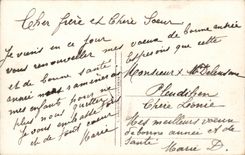 Cher frère et Chère Soeur
Je viens en ce jour
vous renouveller mes voeux de bonne année
et de bonne santé Esperons que cette
année nous ramenera
mes enfants pour ne
plus nous quitter
Je vous embrasse
et de tout coeur
Marie
Monsieur & Me
Pleudihen
Chère Léonie
Mes meilleurs voeux
de bonne année et de
Santé
Marie D.